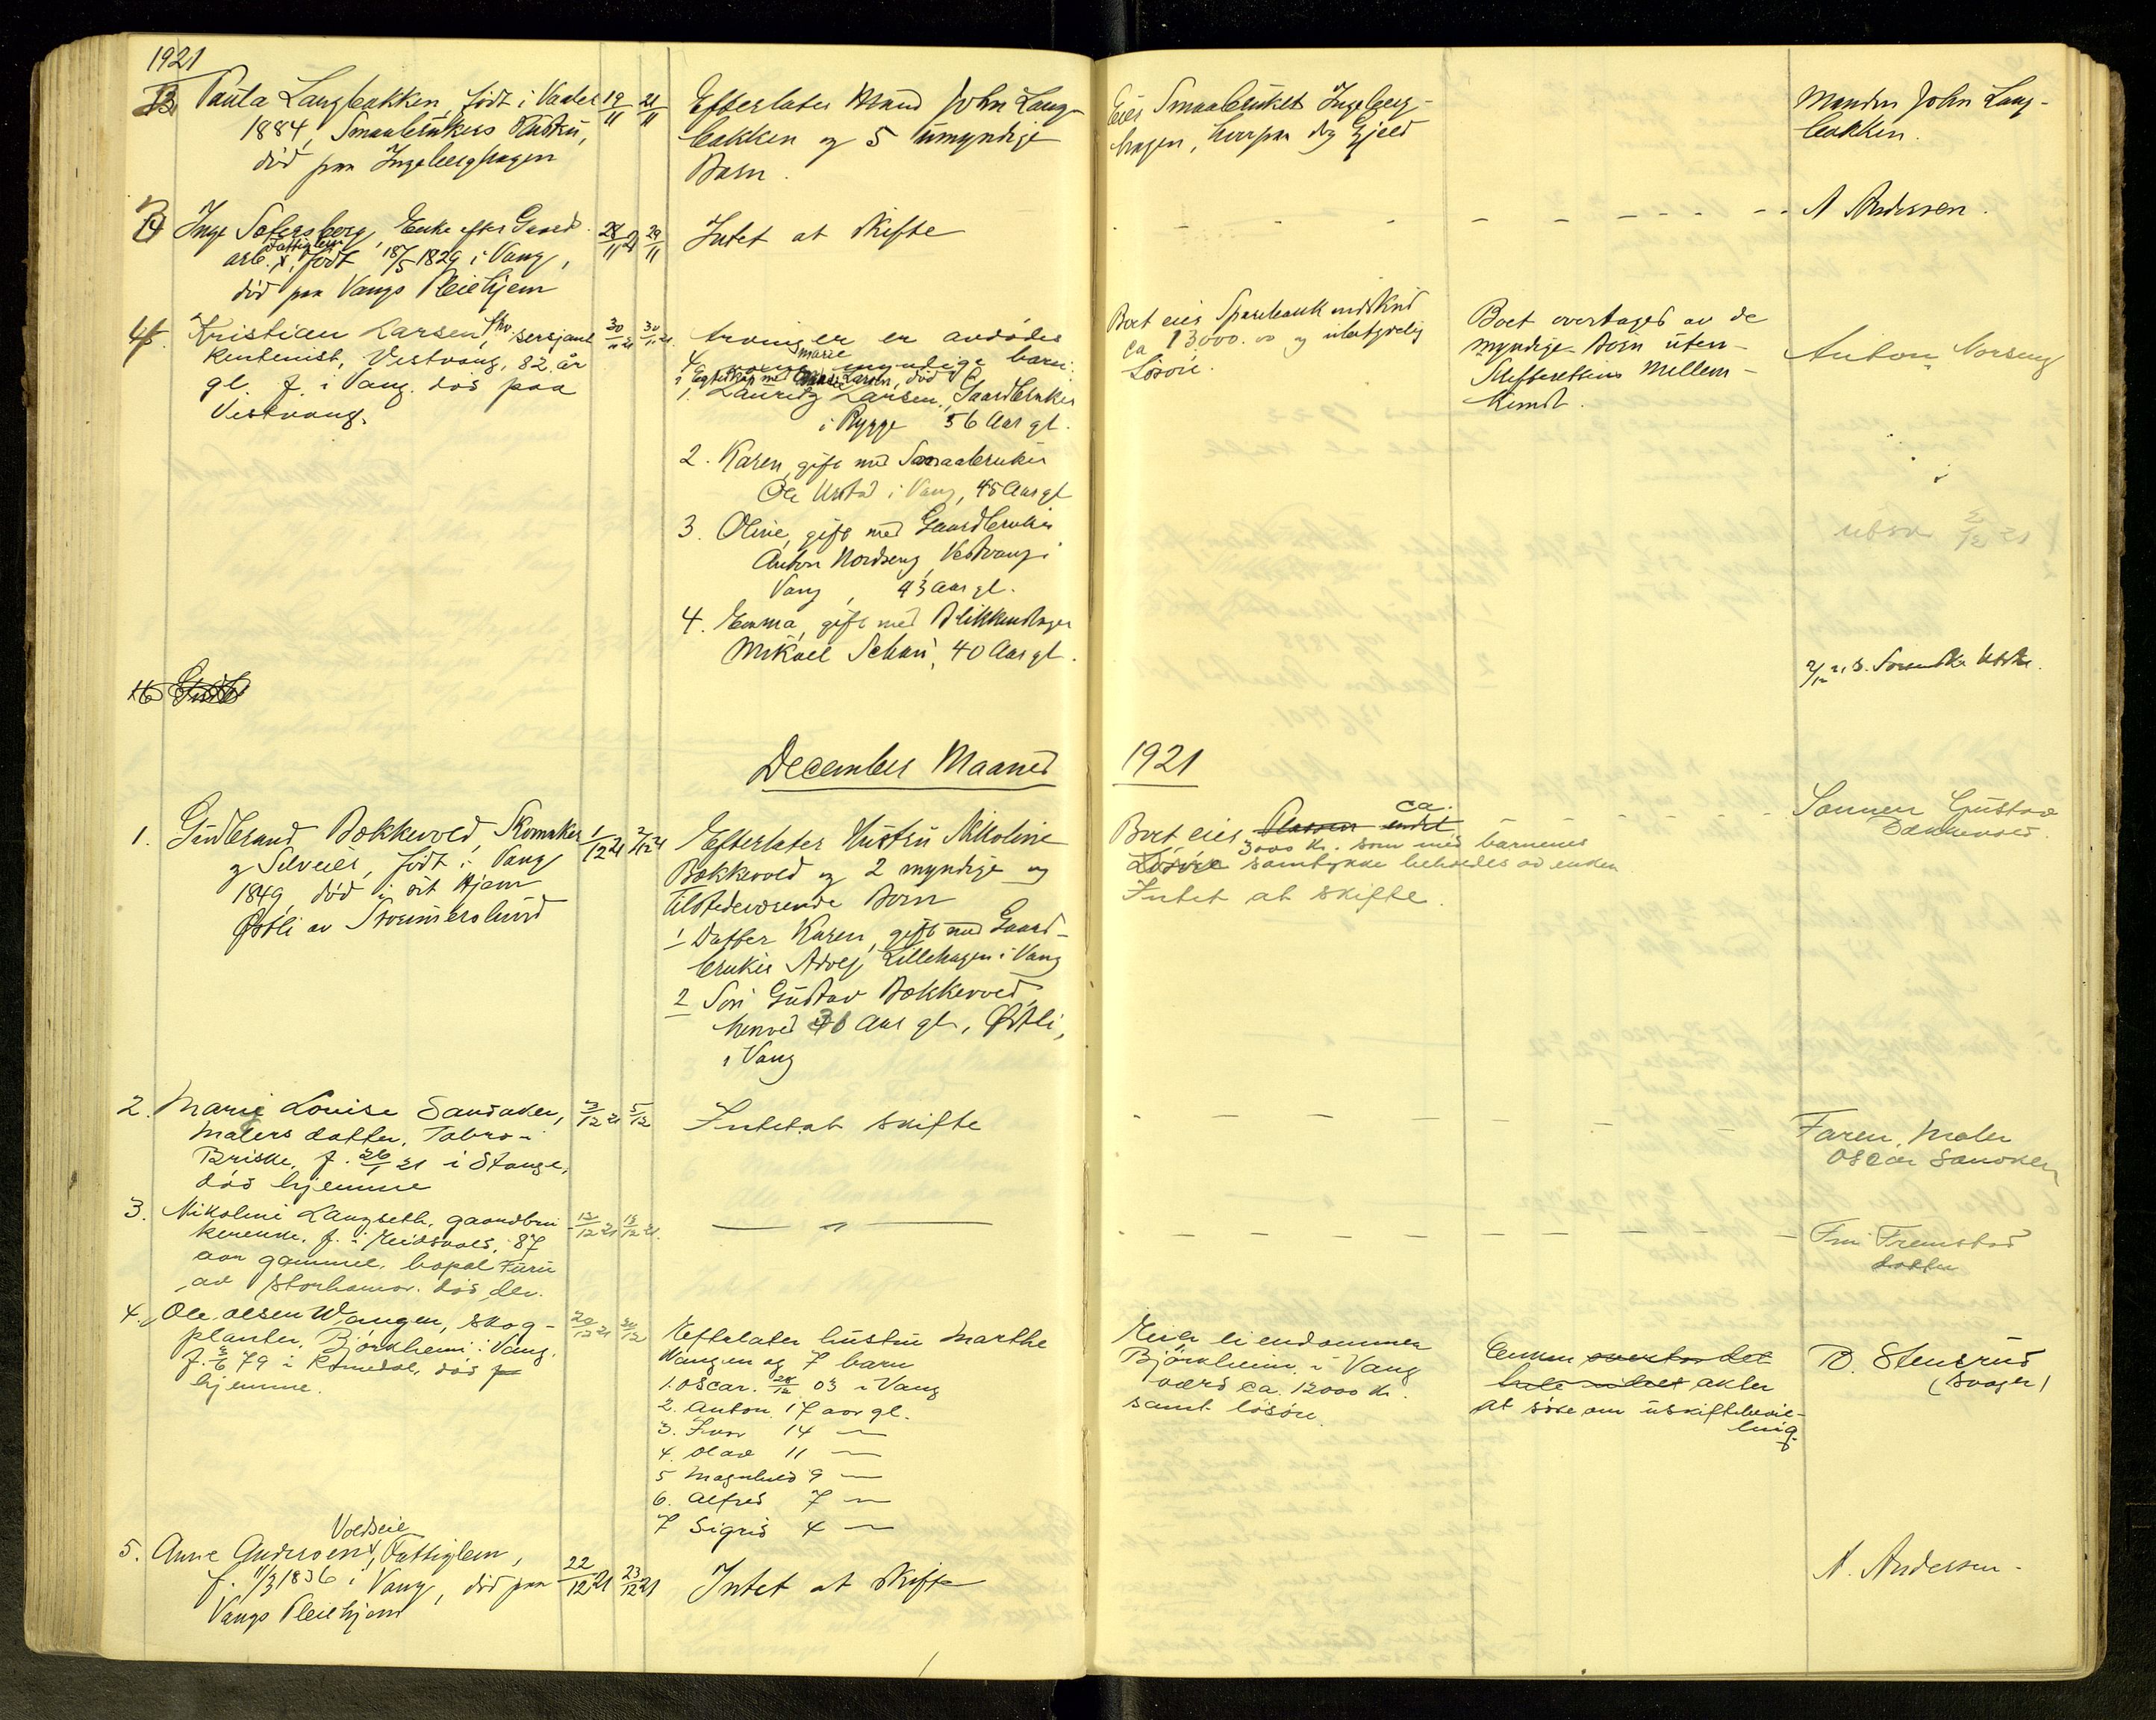 1921
13 Paula Langbakken, født i Vaaler 19/11 21/11
1884, Smaabrukers Hustru,
død paa Ingeberghagen
Efterlater Mand John Lang-
bakken og 5 umyndige
Barn.
Eier Smaabruket Ingeberg-
hagen, hvorpaa dog Gjeld
Manden John Lang-
bakken.
14 Inge Enke efter Gaards-
arb. Fattiglem, født 18/5 1829 i Vang, 28/11 21 29/11
død paa Vangs Pleiehjem
Intet at skifte
A Andersen.
Kristian Larsen, fhv. sersjant 30/11 21 30/11 21
Vestvang, 82 år
gl. f. i Vang. døs paa
Vestvang.
Arvinger er avdødes
4 myndige barn:
i Egteskap med Marie Larsen, død
1. Lauritz Larsen, Gaardbruker
i Rygge 56 Aar gl.
2. Karen, gift med Smaabruker
Ole Urstad i Vang, 45 Aar gl
3. Oline, gift med Gaardbruker
Anton Nordseng, Vestvang i
Vang, 43 Aar gl.
4. Emma, gift med Blikkenslager
Mikael Schou, 40 Aar gl.
Boet eier Sparebank indskud
ca 13000.00 og ubetydelig
Løsøre.
Boet overtages av de
myndige Børn uten
Skifterettens Mellem-
komst.
Anton Norseng
2/12 21
2/12 21. S.
16
December Maaned
1921
1. Gudbrand Bækkevold, Skomaker 1/12 21 2/12 21
og Selveier, født i Vang
1849, død i sit Hjem
Østli av
Efterlater Hustru Nikoline
Bækkevold og 2 myndige og
tilstedeværende Børn
1 Datter Karen, gift med Gaard-
bruker Adolf Lillehagen i Vang
2 Søn Gustav Bækkevold,
henved 30 Aar gl, Østli,
i Vang
Boet eier Plassen ca.
3000 Kr. som med barnenes
Løsøre samtykke beholdes av enken
Intet at skifte.
Sønnen Gustav
Bækkevold.
2. Marie Louise Sandaker, 3/12 21 5/12
Malers datter, Tabro i
Briske, f. 26/1 21 i Stange,
døs hjemme
Intet at skifte
Faren, Maler
Oscar Sandaker
3. Nikoline Langseth, gaardbru- 12/12 21 13/12 21.
kerenke, f. i Eidsvold, 87
aar gammel, bopæl Furu
av Storhamar. døs der.
— " —
Fru Fremstad
datter
4. Ole Olsen Wangen, skog- 20/12 21
planter, Bjørkheim i Vang,
f. 3/6 79 i Romedal, døs pa
hjemme.
Efterlater hustru Marthe
Wangen og 7 barn
1. Oscar. 28/12 03 i Vang
2. Anton 17 aar gl.
3. Ivar 14 —
4. Olav 11 —
5 Magnhild 9 —
6. Alfred 7 —
7 Sigrid 4 —
Eier eiendommen
Bjørkheim i Vang
værd ca. 12000 kr.
samt løsøre.
Enken overtar det
hele akter
at søke om uskiftebevil-
ling
O. Stensrud
(svoger)
Voldseie
5. Anne Andersen, Fattiglem,
f. 11/3 1836 i Vang, død paa 22/12 21 23/12 21
Vangs Pleiehjem
Intet at skifte
A. Andersen.